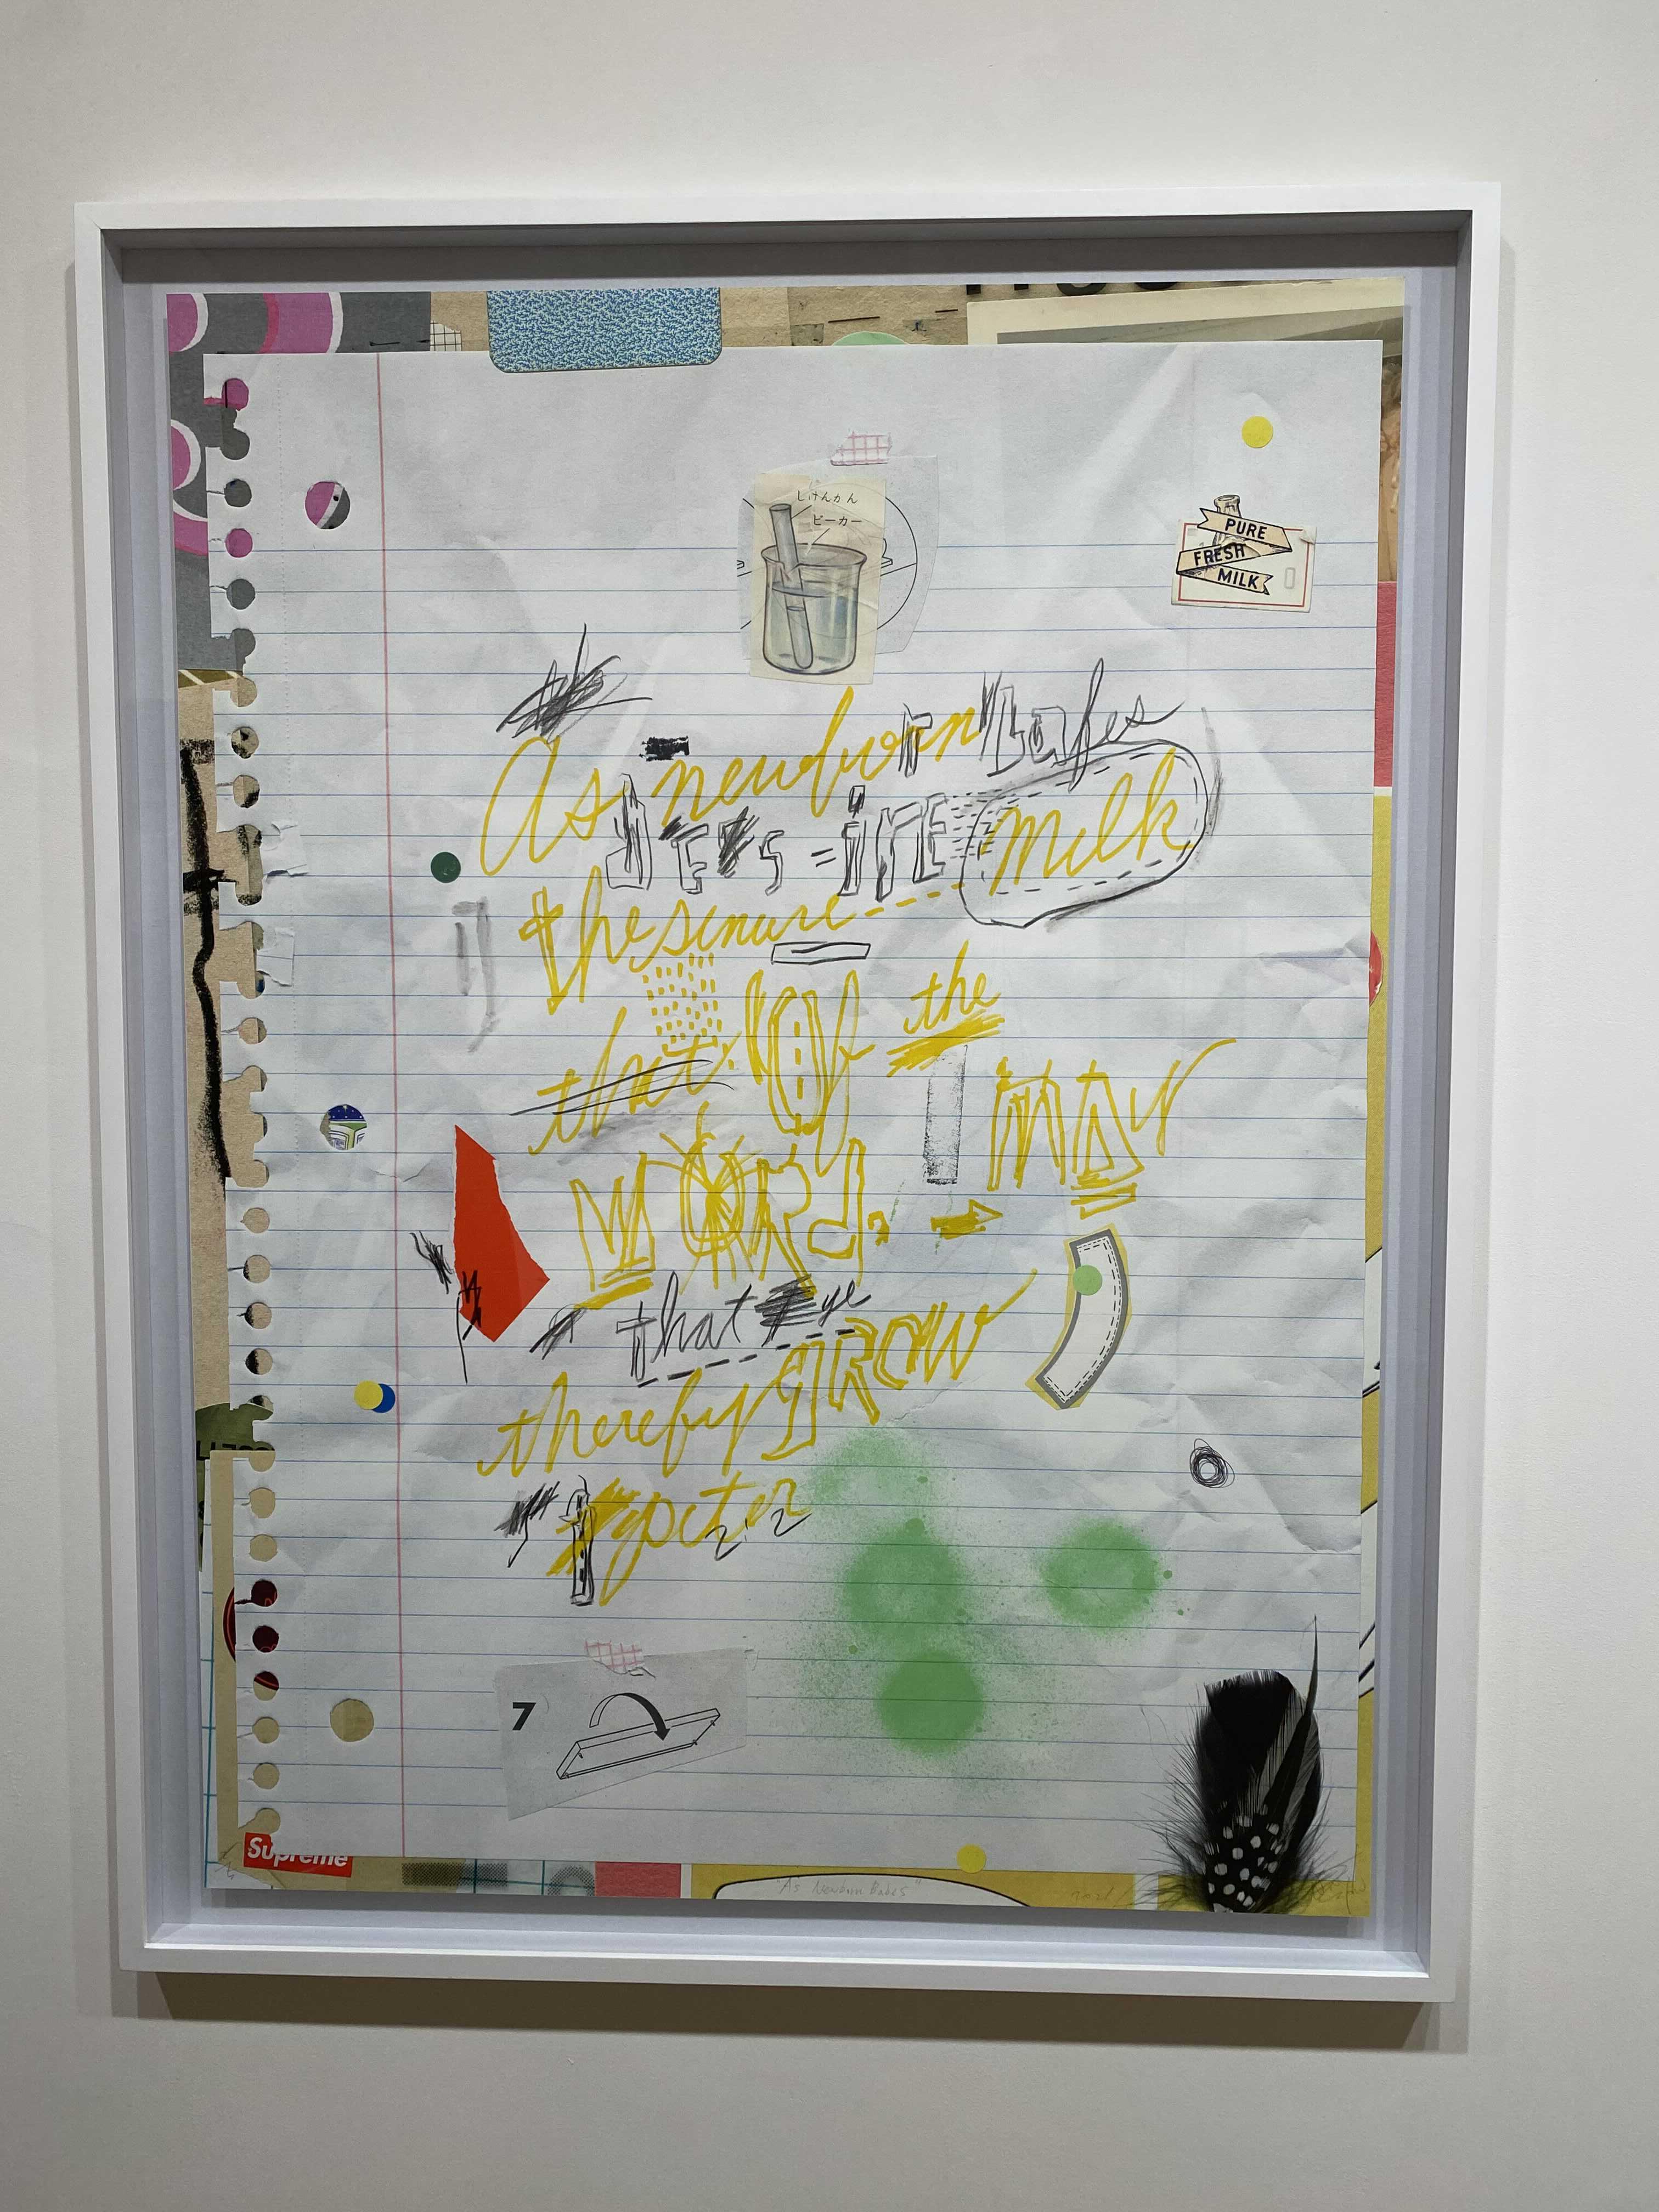 しけんかん
ビーカー
PURE
FRESH
MILK
As newborn babes
des=ire milk
the sincure
that of the
WORD. may
that ye
thereby grow
7
Supreme
"As Newborn Babes"